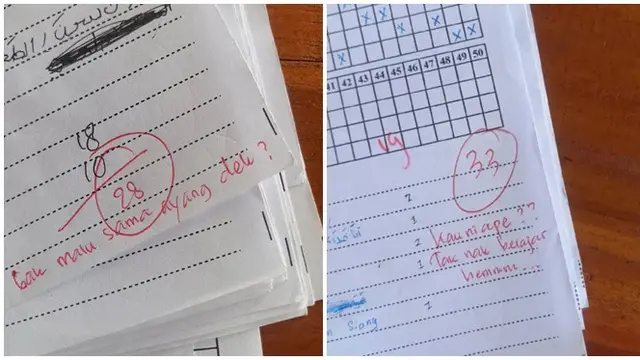 18
10
28
Gak malu sama ayang dek?
41 42 43 44 45 46 47 48 49 50
19
33
2
1
2
1
Kau ni ape??
Tak nak belajar
hemmm...
1
Siang